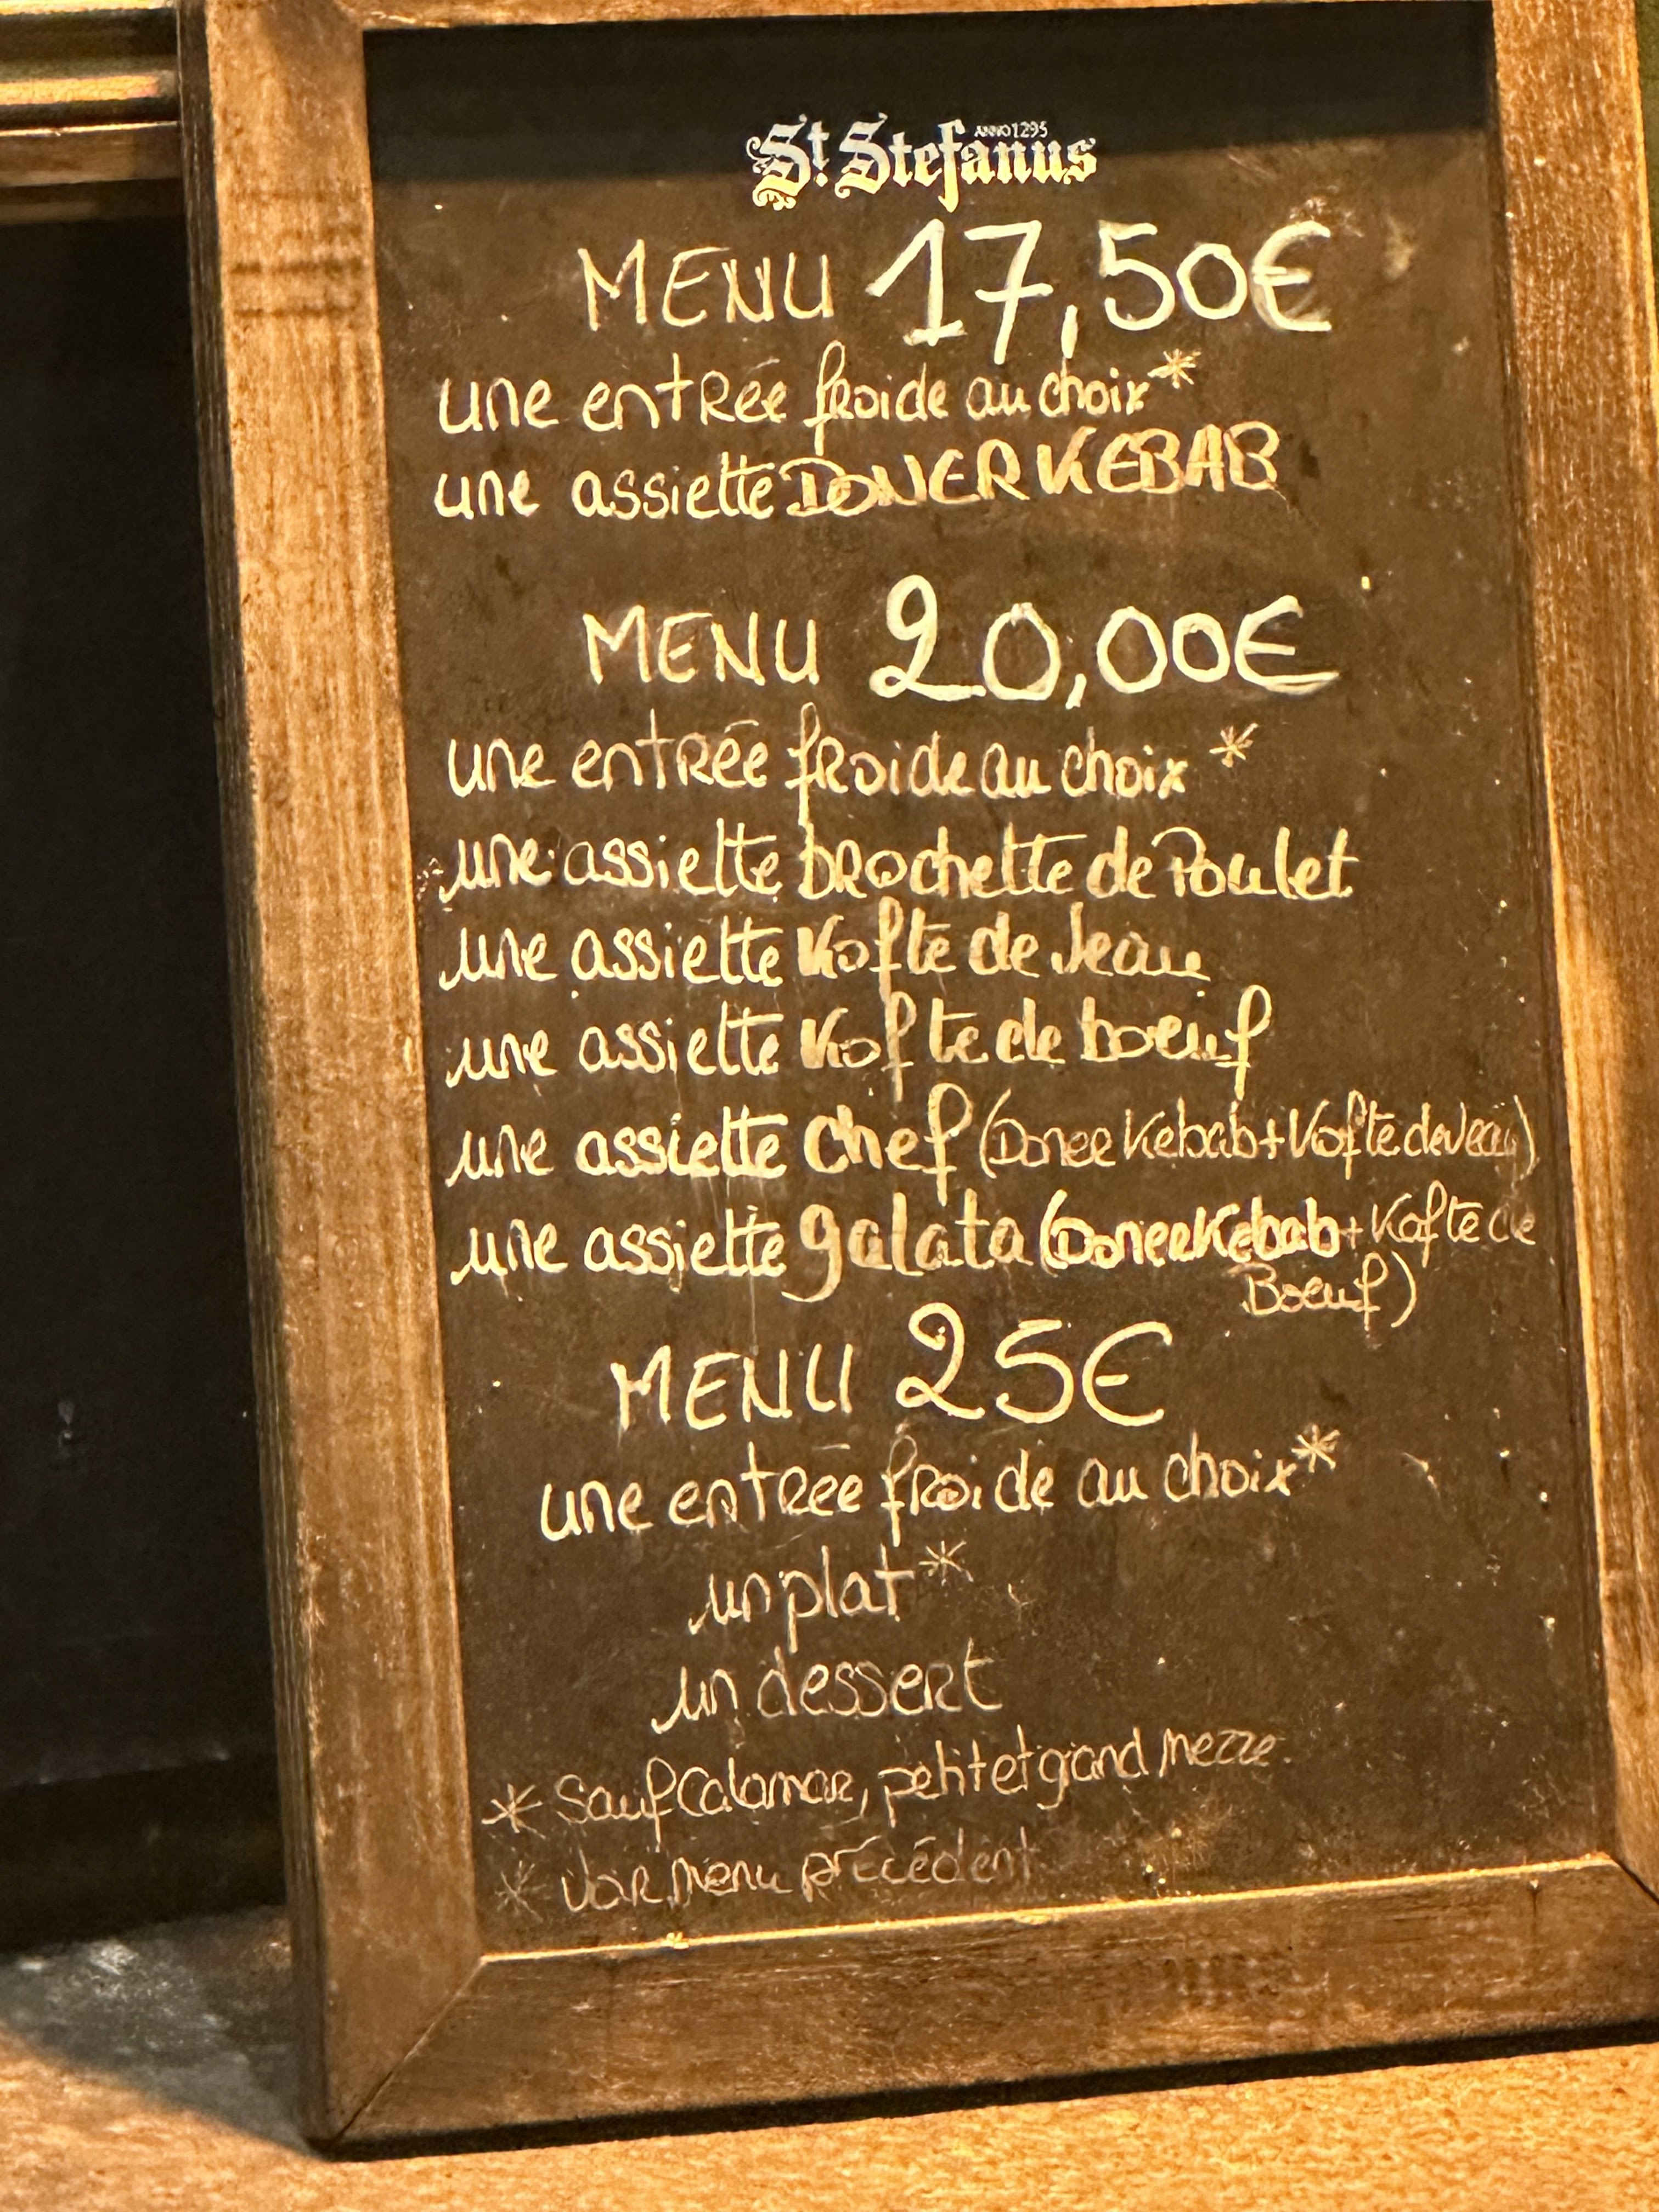 St. Stefanus
ANNO 1295
MENU 17,50€
une entrée froide au choix*
une assiette DONER KEBAB
MENU 20,00€
une entrée froide au choix *
une assiette brochette de Poulet
une assiette Kofte de Veau
une assiette Kofte de boeuf
une assiette chef (Doner Kebab + Kofte de Veau)
une assiette galata (Doner Kebab + Kofte de
Boeuf)
MENU 25€
une entrée froide au choix*
un plat*
un dessert
* Sauf Calamar, petit et grand mezze.
* Voir menu précédent